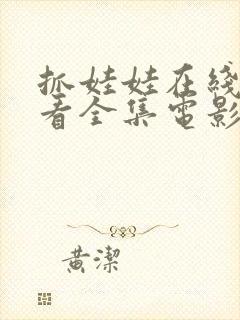 抓娃娃在綫
看全集電影
黃潔